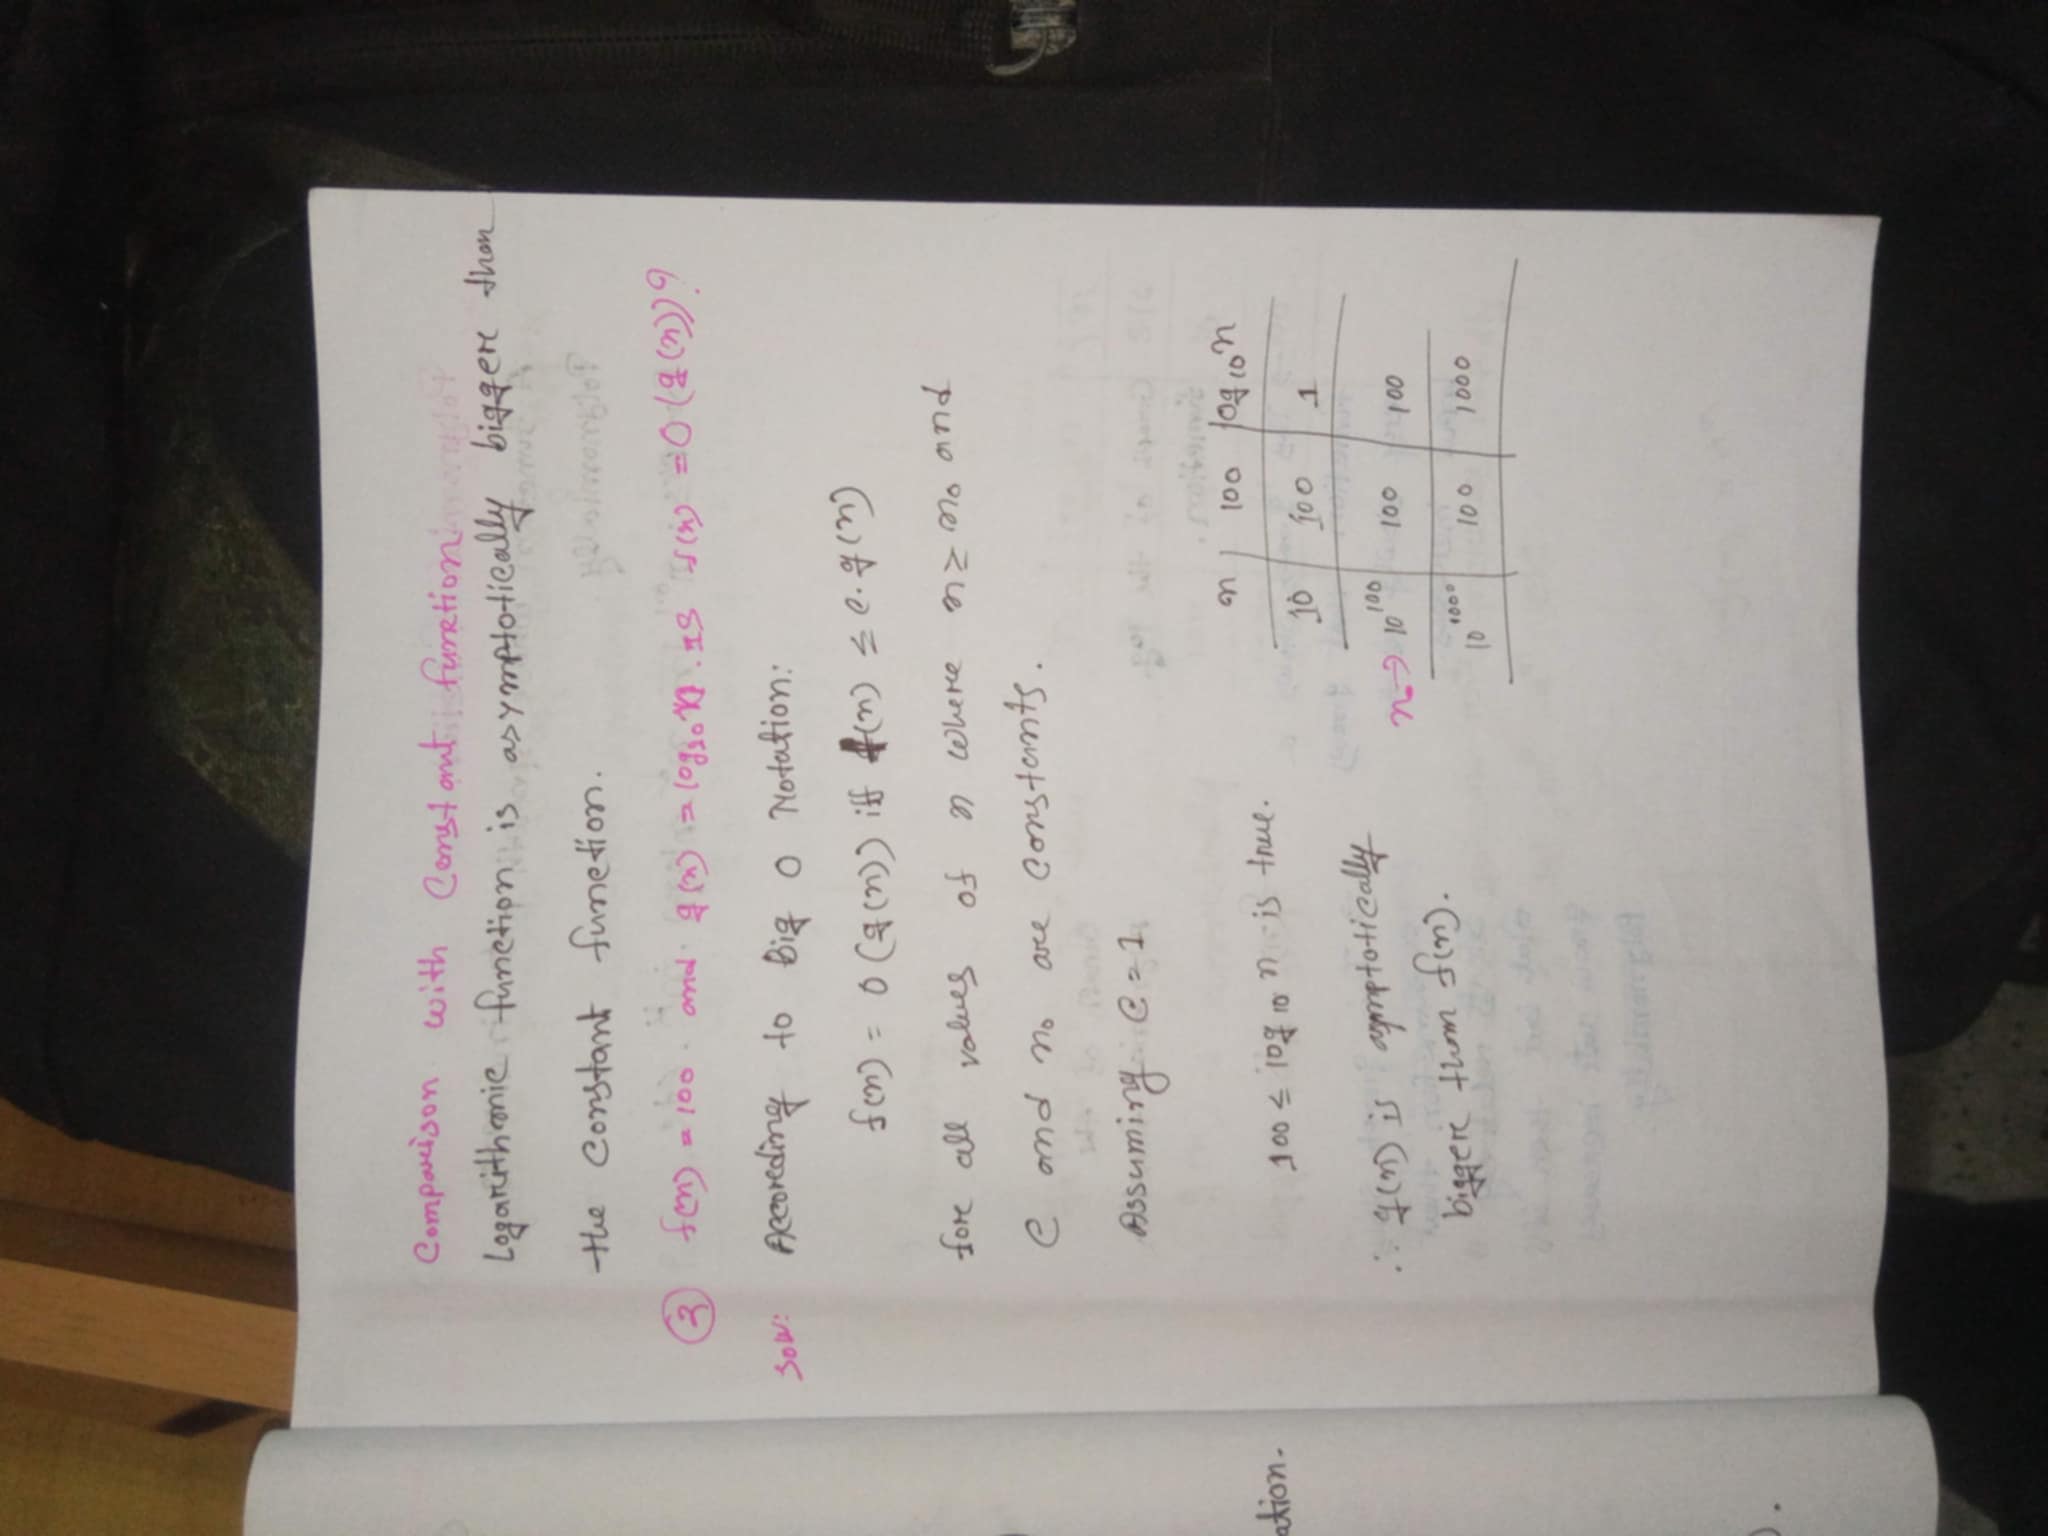 Comparison with Constant function
Logarithmic function is asymptotically bigger than
the constant function.
② f(n) = 100 and g(n) = log₁₀n. Is f(n) = O(g(n))?
Soln: According to Big O Notation:
f(n) = O(g(n)) iff f(n) ≤ c.g(n)
for all values of n where n ≥ n₀ and
c and n₀ are constants.
Assuming c = 1
n 100 log₁₀n
100 ≤ log₁₀n is true.
10 100 1
∴ g(n) is asymptotically
n₀→ 10¹⁰⁰ 100 100
bigger than f(n).
10¹⁰⁰⁰ 100 1000
ation.